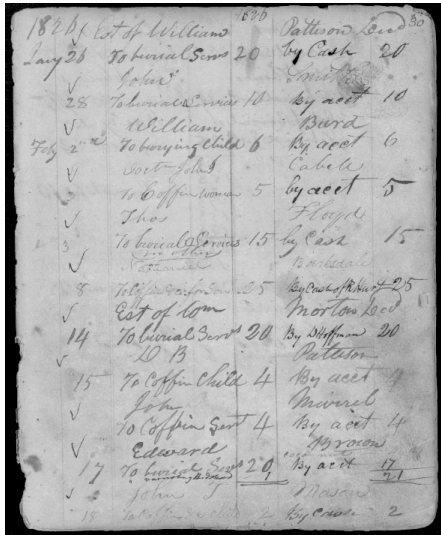 1826 Est of William 1826 Pattison Decd 30
Jany 26 To burial Servs 20 by Cash 20
John
28 To burial Services 10 By acct 10
William Burd
Feby 2nd To burying Child 6 By acct 6
Doct John Cabell
3 To Coffin woman 5 by acct 5
Tho Floyd
3 To burial Services 15 by Cash 15
Barksdale
8 To 25 By Cash of R Hurt 25
Est of Com Mortons Decd
14 To burial Servs 20 By D Hoffman 20
D B Patteson
15 To Coffin Child 4 By acct 4
John
To Coffin Sert 4 By acct 4
Edward Brown
17 To burial Servs 20 By acct 17
1 21
John T Mason
18 To Coffin child 2 By Cash 2